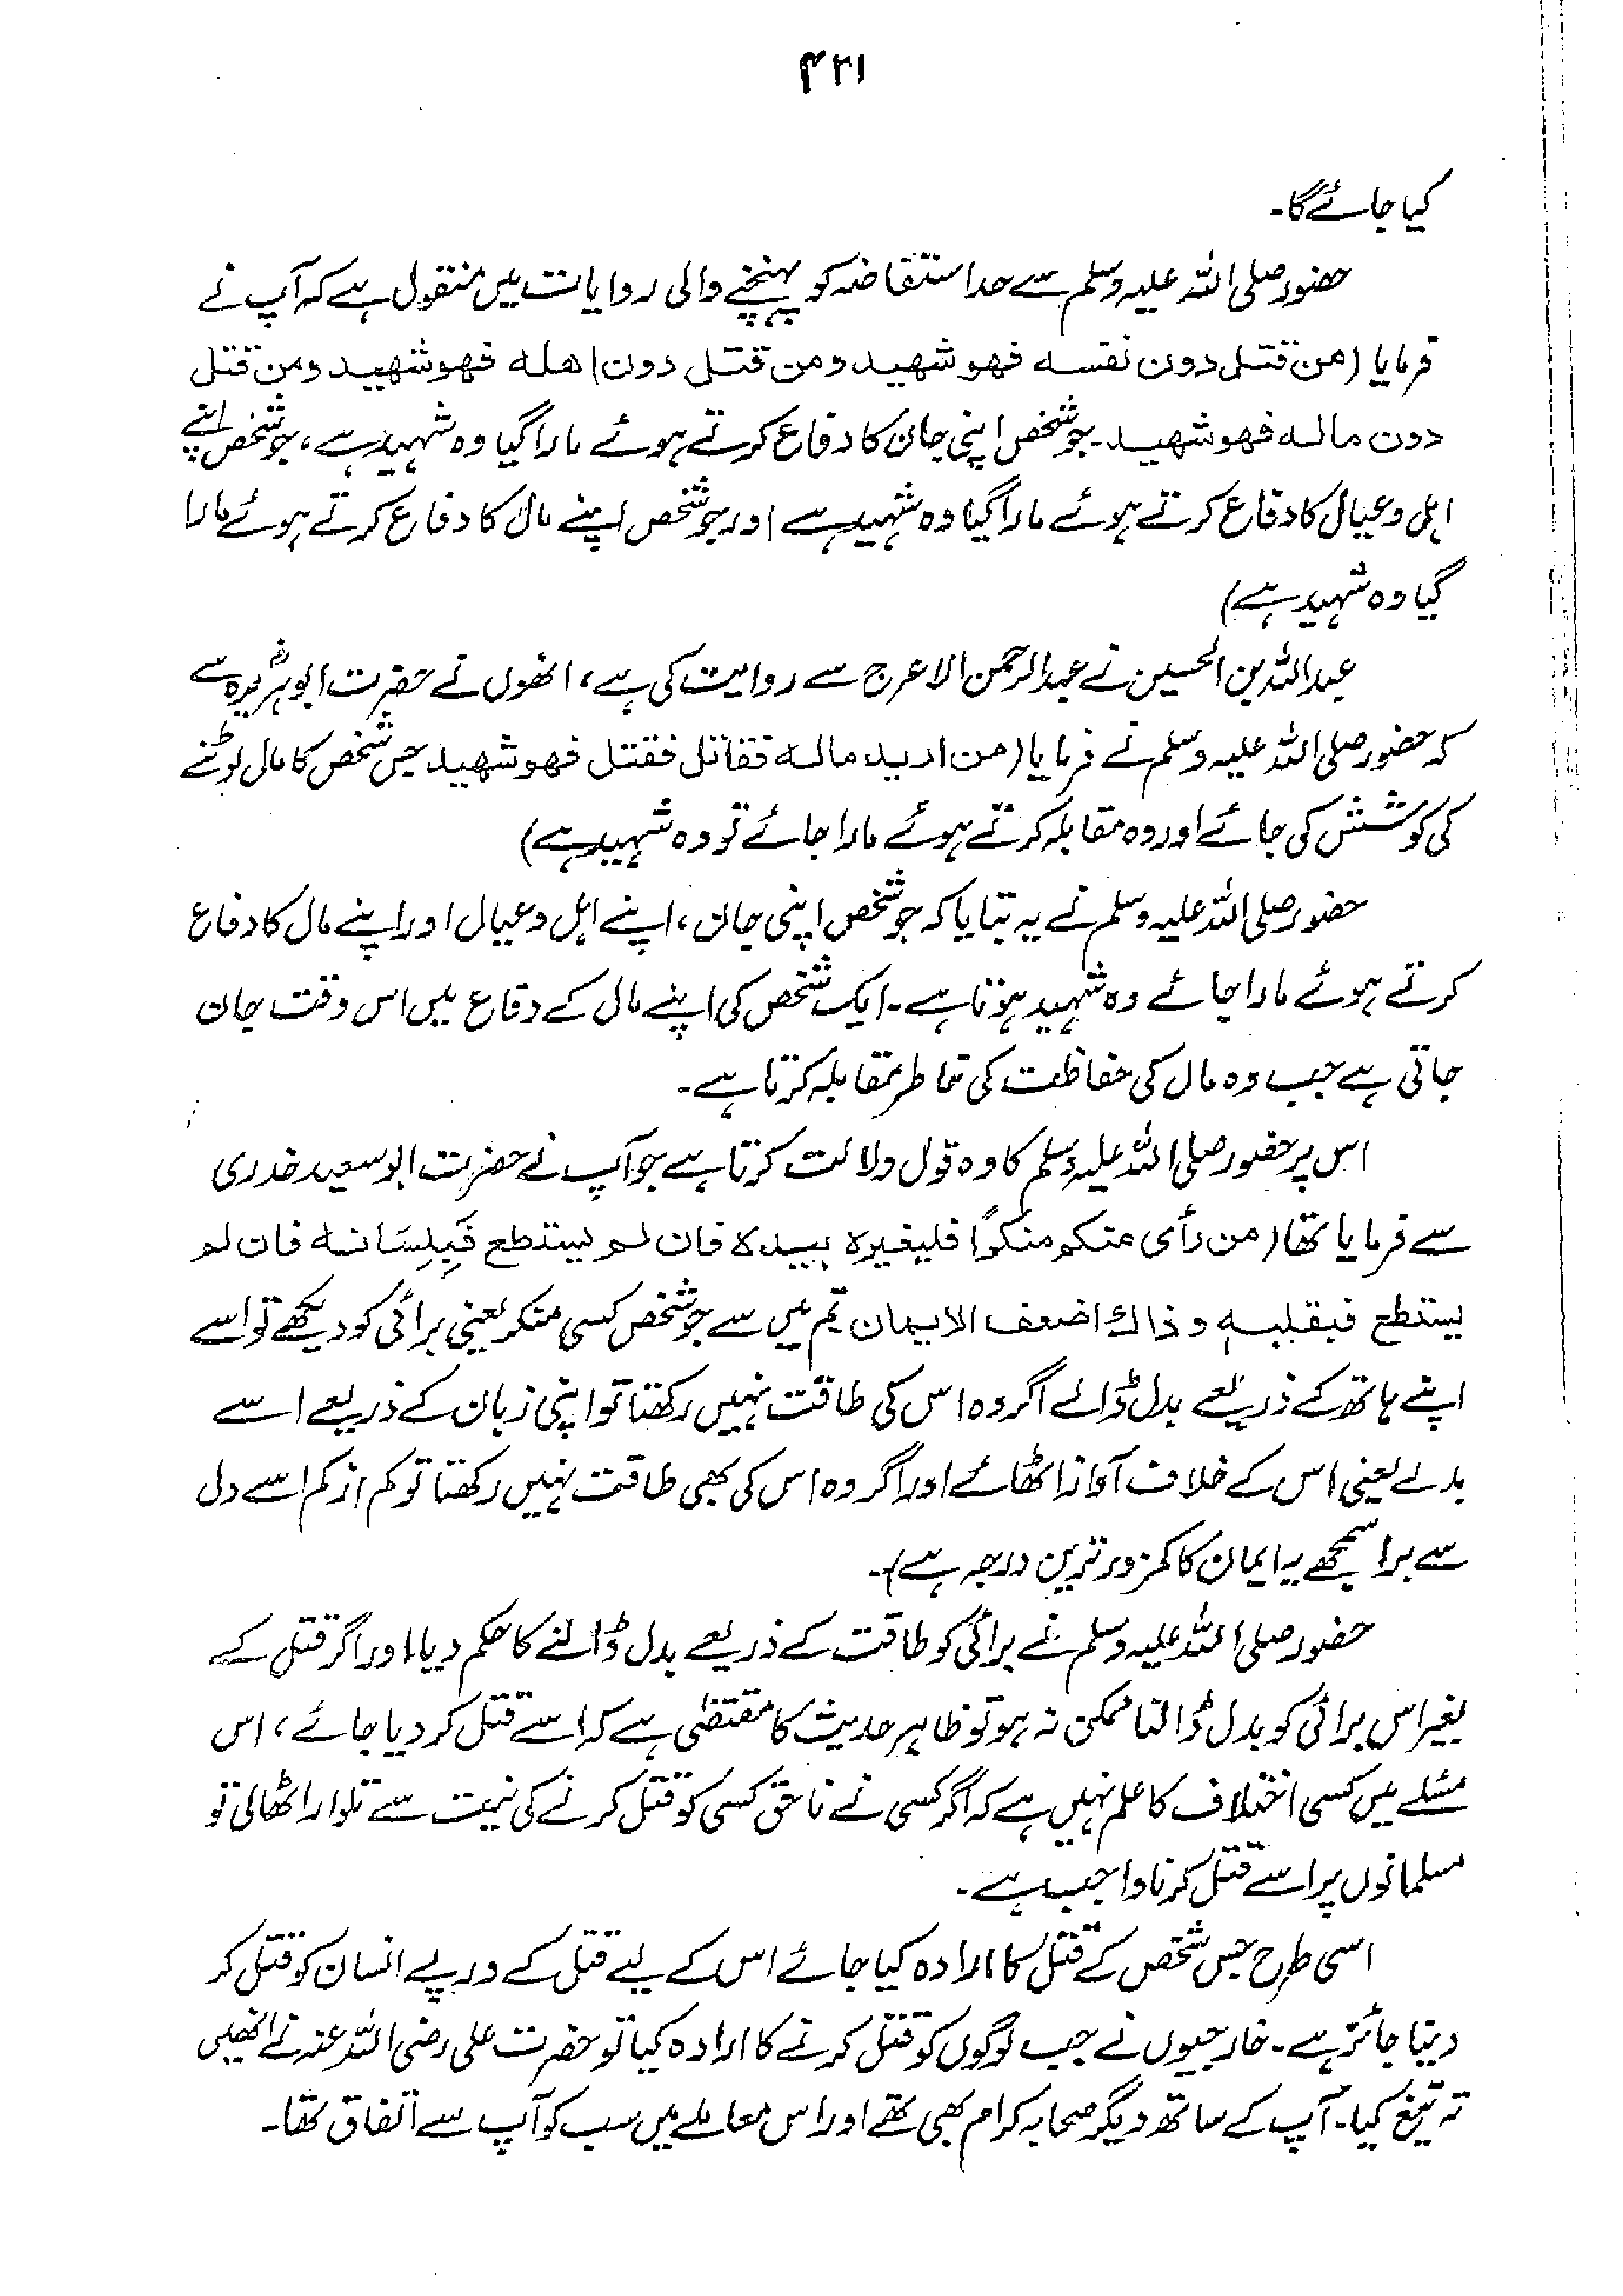 ۴۲۱
کیا جائے گا۔
حضور صلی اللہ علیہ وسلم سے حد استفاضہ کو پہنچنے والی روایات میں منقول ہے کہ آپ نے
فرمایا (من قتل دون نفسه فهو شهيد ومن قتل دون اهله فهو شهيد ومن قتل
دون ماله فهو شهيد۔ جو شخص اپنی جان کا دفاع کرتے ہوئے مارا گیا وہ شہید ہے، جو شخص اپنے
اہل و عیال کا دفاع کرتے ہوئے مارا گیا وہ شہید ہے اور جو شخص اپنے مال کا دفاع کرتے ہوئے مارا
گیا وہ شہید ہے)
عبداللہ بن الحسین نے عبدالرحمن الاعرج سے روایت کی ہے، انھوں نے حضرت ابو ہریرہؓ سے
کہ حضور صلی اللہ علیہ وسلم نے فرمایا (من اريد ماله فقاتل فقتل فهو شهيد جس شخص کا مال لوٹنے
کی کوشش کی جائے اور وہ مقابلہ کرتے ہوئے مارا جائے تو وہ شہید ہے)
حضور صلی اللہ علیہ وسلم نے یہ بتایا کہ جو شخص اپنی جان، اپنے اہل و عیال اور اپنے مال کا دفاع
کرتے ہوئے مارا جائے وہ شہید ہوتا ہے۔ ایک شخص کی اپنے مال کے دفاع میں اس وقت جان
جاتی ہے جب وہ مال کی حفاظت کی خاطر مقابلہ کرتا ہے۔
اس پر حضور صلی اللہ علیہ وسلم کا وہ قول دلالت کرتا ہے جو آپ نے حضرت ابو سعید خدری
سے فرمایا تھا (من رأى منكم منكرًا فليغيره بيده فان لم يستطع فَبِلِسَانه فان لم
يستطع فبقلبه و ذاك اضعف الايمان تم میں سے جو شخص کسی منکر یعنی برائی کو دیکھے تو اسے
اپنے ہاتھ کے ذریعے بدل ڈالے اگر وہ اس کی طاقت نہیں رکھتا تو اپنی زبان کے ذریعے اسے
بدلے یعنی اس کے خلاف آواز اٹھائے اور اگر وہ اس کی بھی طاقت نہیں رکھتا تو کم از کم اسے دل
سے برا سمجھے یہ ایمان کا کمزور ترین درجہ ہے)۔
حضور صلی اللہ علیہ وسلم نے برائی کو طاقت کے ذریعے بدل ڈالنے کا حکم دیا اور اگر قتل کے
بغیر اس برائی کو بدل ڈالنا ممکن نہ ہو تو ظاہر حدیث کا مقتضٰی ہے کہ اسے قتل کر دیا جائے، اس
مسئلے میں کسی اختلاف کا علم نہیں ہے کہ اگر کسی نے ناحق کسی کو قتل کرنے کی نیت سے تلوار اٹھالی تو
مسلمانوں پر اسے قتل کرنا واجب ہے۔
اسی طرح جس شخص کے قتل کا ارادہ کیا جائے اس کے لیے قتل کے درپے انسان کو قتل کر
دینا جائز ہے۔ خارجیوں نے جب لوگوں کو قتل کرنے کا ارادہ کیا تو حضرت علی رضی اللہ عنہ نے انھیں
تہ تیغ کیا۔ آپ کے ساتھ دیگر صحابہ کرام بھی تھے اور اس معاملے میں سب کو آپ سے اتفاق تھا۔